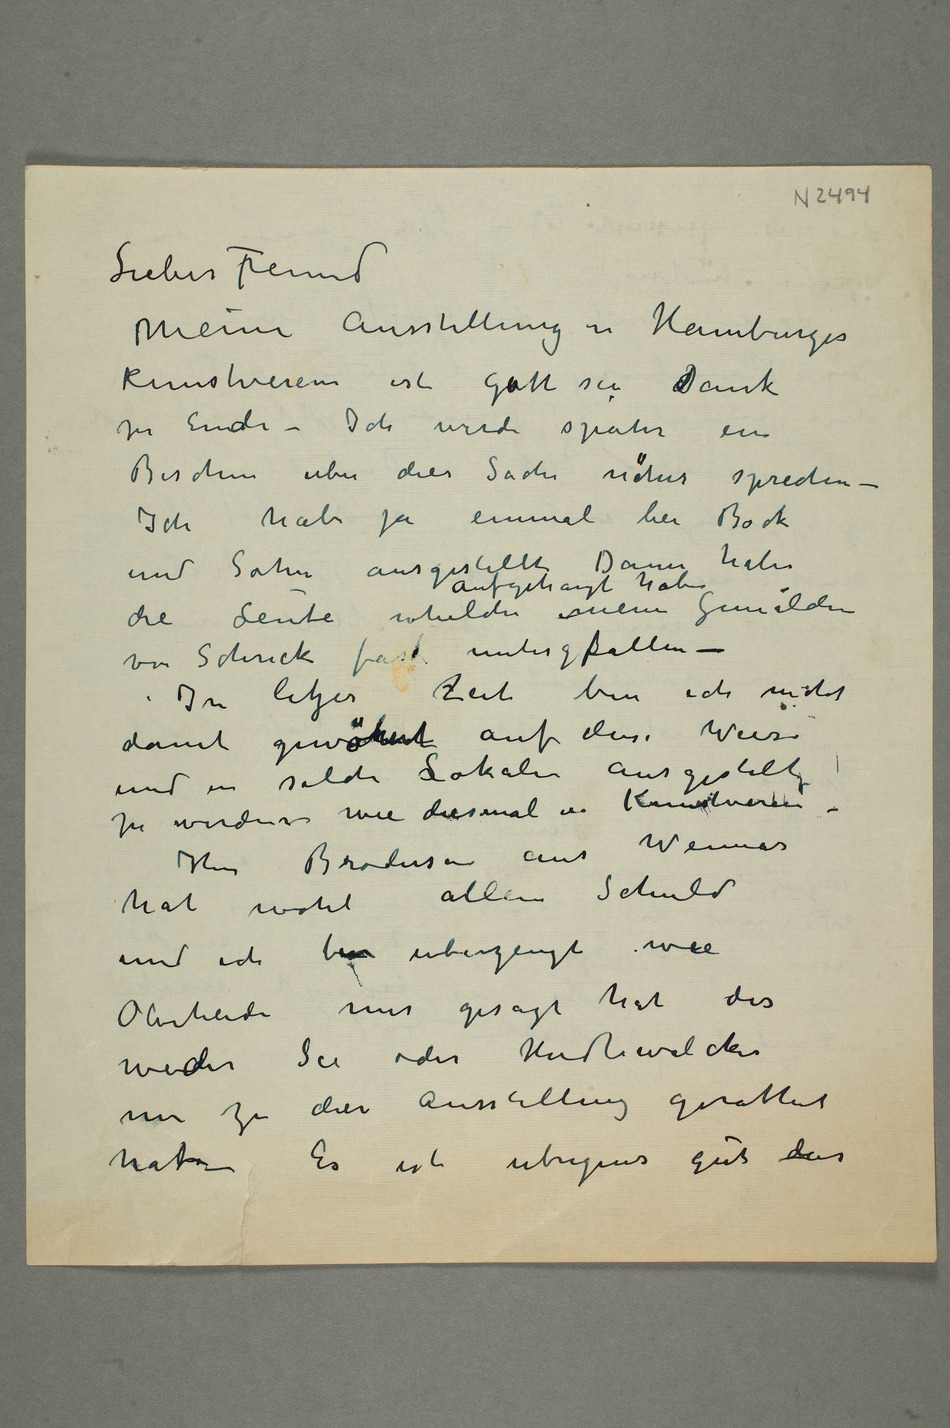 N 2494
Lieber Freund
Meine Ausstellung in Hamburger
Kunstverein ist Gott sei Dank
zu Ende – Ich werde später ein
Bischen uber dies Sache näher sprechen –
Ich habe ja einmal bei Bock
und Sohn ausgestellt Dann haben
aufgehängt haben
die Leute meine Gemälden
vor Schreck fast umtergfallen –
In letzer Zeit bin ich nicht
damit gewöhnt auf diese Weise
und in solche Lokalen ausgestellt
zu werden wie diesmal in Kunstverein –
Herr Brodersen aus Weimar
hat wohl allein Schuld
und ich bin uberzeugt wie
mir gesagt hat das
weder Sie oder Hudtwalcker
mir zu dies Ausstellung gerathet
haben Es ist ubrigens gut das